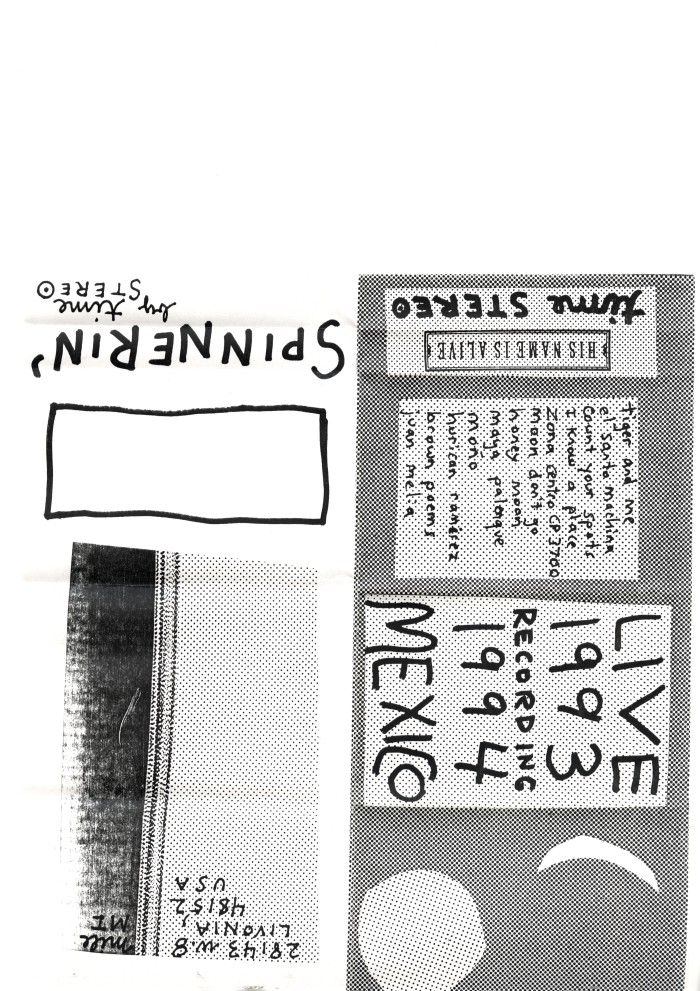 SPINNERIN'
by time
STEREO
28143 W.8 mile
LIVONIA, MI
48152
USA
time STEREO
HIS NAME IS ALIVE
tiger and me
el santa machina
Count your spots
I know a place
Zona centro CP 3700
moon don't go
honey moon
maya palenque
mono
hurican ramerez
brown poems
juan melia
LIVE
1993
RECORDING
1994
MEXICO